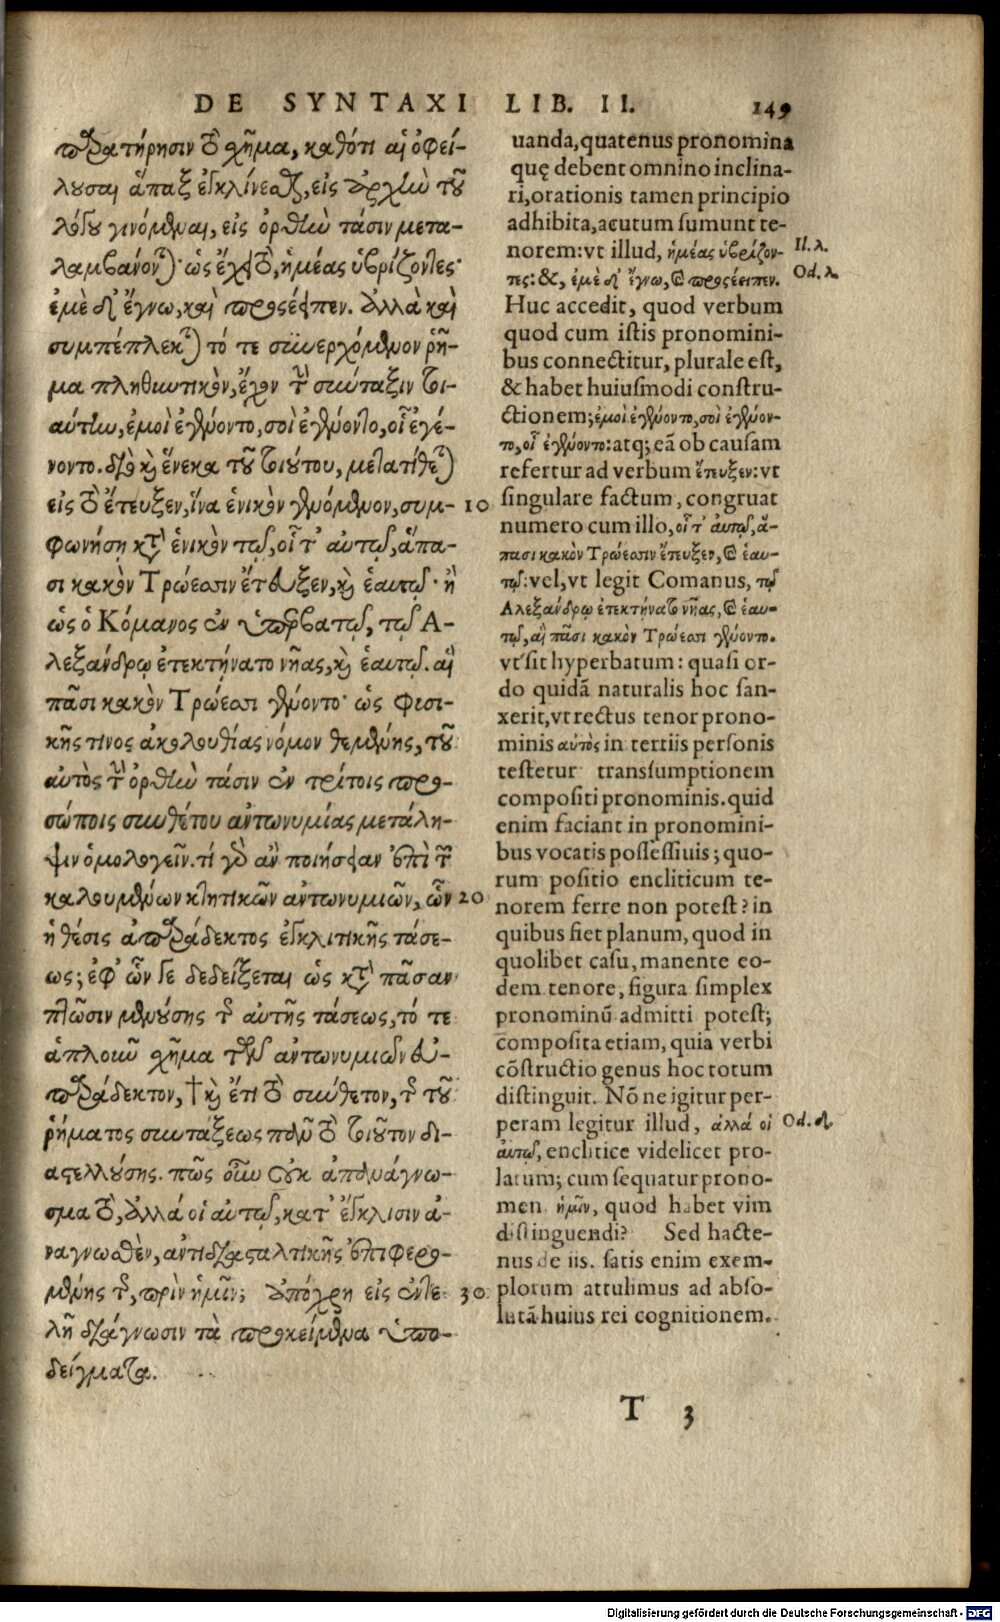 DE SYNTAXI LIB. II. 149
παρατήρησιν τὸ σχῆμα, καθότι αἱ ὀφεί-
λουσαι ἅπαξ ἐγκλίνεσθαι, εἰς ἀρχὴν τοῦ
λόγου γινόμεναι, εἰς ὀρθὴν τάσιν μετα-
λαμβάνονται· ὡς ἔχει τὸ, ἡμέας ὑβρίζοντες·
ἐμὲ δ' ἔγνω, καὶ προσέειπεν. ἀλλὰ καὶ
συμπέπλεκται τό τε συνερχόμενον ῥῆ-
μα πληθυντικὸν, ἔχον τὴν σύνταξιν τοι-
αύτην, ἐμοὶ ἐγένοντο, σοὶ ἐγένοντο, οἷ ἐγέ-
νοντο. διὸ καὶ ἕνεκα τοῦ τοιούτου, μετατίθεται
εἰς τὸ ἔτευξεν, ἵνα ἑνικὸν γενόμενον, συμ- 10
φωνήσῃ κατὰ ἑνικὸν τῷ, οἷ τ' αὐτῷ, ἅπα-
σι κακὸν Τρώεσσιν ἔτευξεν, καὶ ἑαυτῷ· ἢ
ὡς ὁ Κόμανος ἐν ὑπερβατῷ, τῷ Ἀ-
λεξάνδρῳ ἐτεκτήνατο νῆας, καὶ ἑαυτῷ. αἳ
πᾶσι κακὸν Τρώεσσι γένοντο· ὡς φυσι-
κῆς τινος ἀκολουθίας νόμον θεμένης, τοῦ
αὐτὸς τὴν ὀρθὴν τάσιν ἐν τρίτοις προ-
σώποις συνθέτου ἀντωνυμίας μετάλη-
ψιν ὁμολογεῖν. τί γὰρ ἂν ποιήσειαν ἐπὶ τῶν
καλουμένων κλητικῶν ἀντωνυμιῶν, ὧν 20
ἡ θέσις ἀπαράδεκτος ἐγκλιτικῆς τάσε-
ως; ἐφ' ὧν γε δεδείξεται ὡς κατὰ πᾶσαν
πτῶσιν μενούσης τῆς αὐτῆς τάσεως, τό τε
ἁπλοῦν σχῆμα τῶν ἀντωνυμιῶν εὐ-
παράδεκτον, † καὶ ἔτι τὸ σύνθετον, τῆς τοῦ
ῥήματος συντάξεως πᾶν τὸ τοιοῦτον δι-
αστελλούσης. πῶς οὖν οὐκ ἀπὸ ἀνάγνω-
σμα τὸ, ἀλλά οἱ αὐτῷ, κατ' ἔγκλισιν ἀ-
ναγνωσθὲν, ἀντιδιασταλτικῆς ἐπιφερο-
μένης τῆς, πρὶν ἡμῖν; ἀπόχρη εἰς ἐντε- 30
λῆ διάγνωσιν τὰ προκείμενα ὑπο-
δείγματα.
uanda, quatenus pronomina
quę debent omnino inclina-
ri, orationis tamen principio
adhibita, acutum sumunt te-
norem: vt illud, ἡμέας ὑβρίζον- Il. λ.
τες: &, ἐμὲ δ' ἔγνω, καὶ προσέειπεν. Od. λ.
Huc accedit, quod verbum
quod cum istis pronomini-
bus connectitur, plurale est,
& habet huiusmodi constru-
ctionem; ἐμοὶ ἐγένοντο, σοὶ ἐγένον-
το, οἷ ἐγένοντο: atq; eã ob causam
refertur ad verbum ἔτευξεν: vt
singulare factum, congruat
numero cum illo, οἷ τ' αὐτῷ, ἅ-
πασι κακὸν Τρώεσσιν ἔτευξεν, καὶ ἑαυ-
τῷ: vel, vt legit Comanus, τῷ
Ἀλεξάνδρῳ ἐτεκτήνατο νῆας, καὶ ἑαυ-
τῷ, αἳ πᾶσι κακὸν Τρώεσσι γένοντο.
vt sit hyperbatum: quasi or-
do quidã naturalis hoc san-
xerit, vt rectus tenor prono-
minis αὐτὸς in tertiis personis
testetur transsumptionem
compositi pronominis. quid
enim faciant in pronomini-
bus vocatis possessiuis; quo-
rum positio encliticum te-
norem ferre non potest? in
quibus fiet planum, quod in
quolibet casu, manente eo-
dem tenore, figura simplex
pronominũ admitti potest;
composita etiam, quia verbi
cõstructio genus hoc totum
distinguit. Nõne igitur per-
peram legitur illud, ἀλλά οἱ Od. δ.
αὐτῷ, enclitice videlicet pro-
latum; cum sequatur prono-
men ἡμῖν, quod habet vim
distinguendi? Sed hacte-
nus de iis. satis enim exem-
plorum attulimus ad abso-
lutã huius rei cognitionem.
T 3
Digitalisierung gefördert durch die Deutsche Forschungsgemeinschaft - DFG